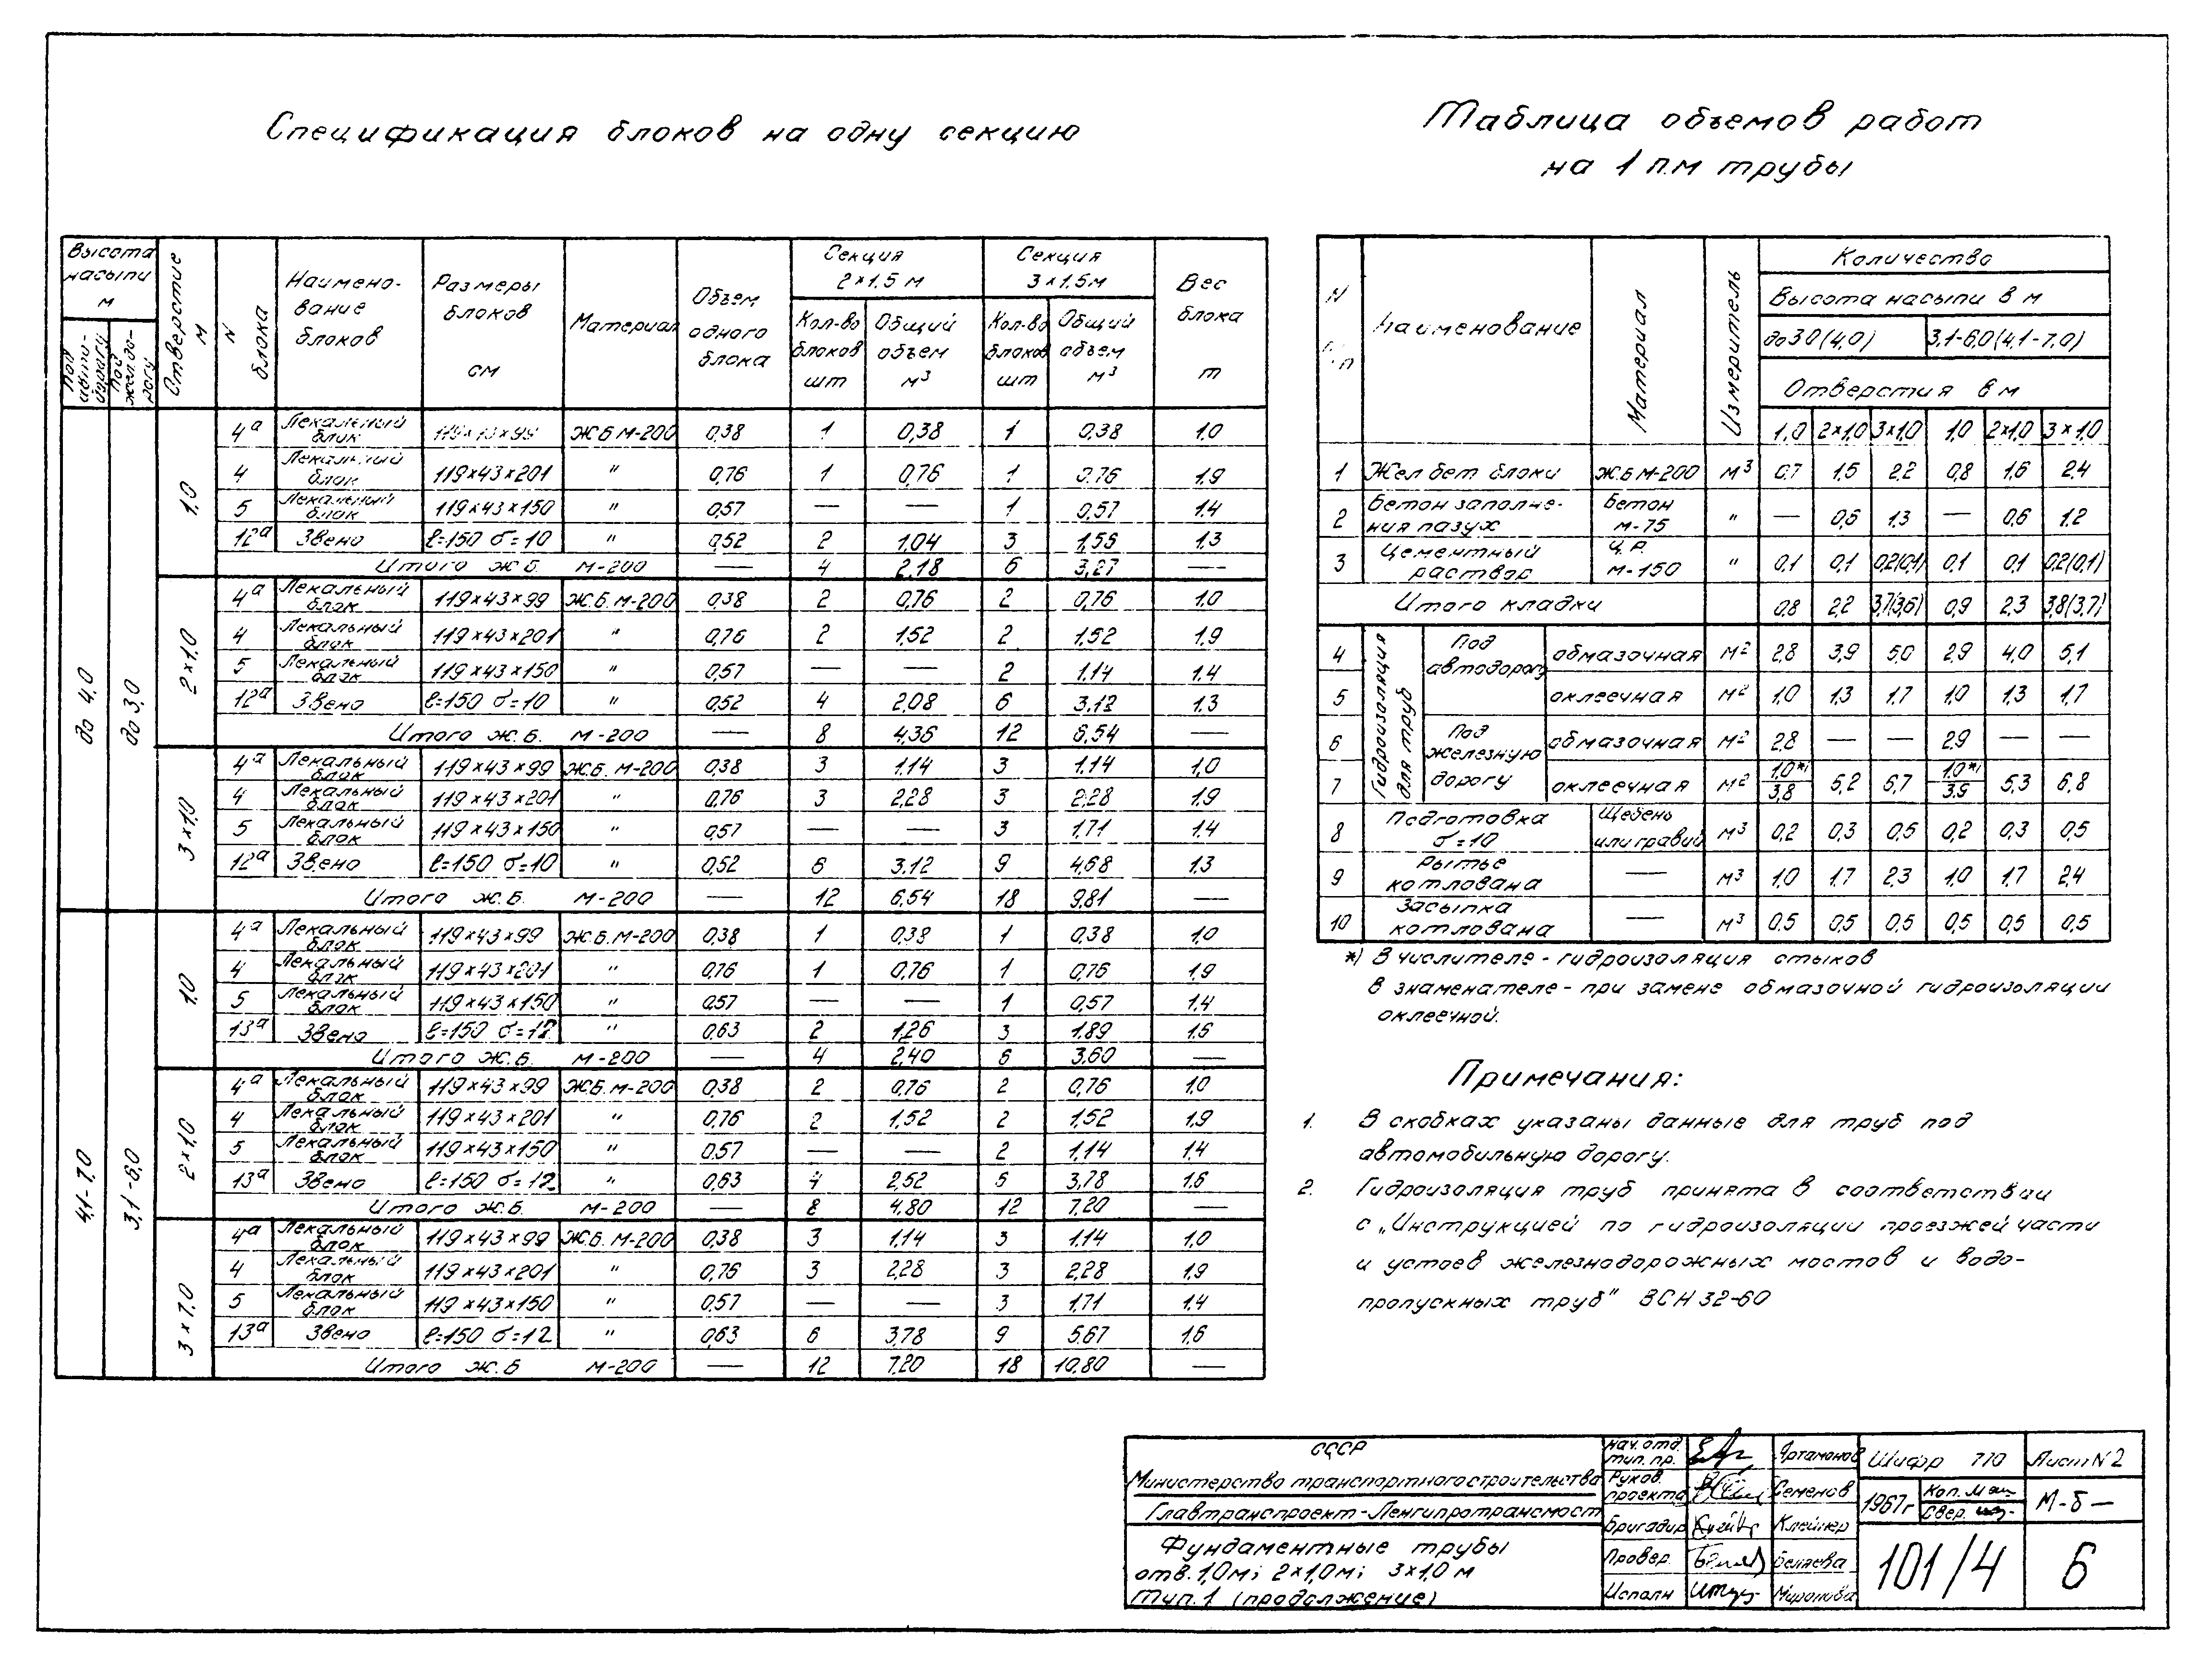 Спецификация блоков на одну секцию
Высота насыпи м
Под автодорогу
Под жел.дорогу
Отверстие м
N блока
Наимено-
вание
блоков
Размеры
блоков
см
Материал
Объем
одного
блока
Секция
2×1,5 м
Кол-во
блоков
шт
Общий
объем
м³
Секция
3×1,5м
Кол-во
блоков
шт
Общий
объем
м³
Вес
блока
т
до 4,0
до 3,0
1,0
4а Лекальный блок 119×43×99 Ж.Б М-200 0,38 1 0,38 1 0,38 1,0
4 Лекальный блок 119×43×201 " 0,76 1 0,76 1 0,76 1,9
5 Лекальный блок 119×43×150 " 0,57 — — 1 0,57 1.4
12а Звено ℓ=150 σ=10 " 0,52 2 1,04 3 1,56 1,3
Итого ж.б. М-200 — 4 2,18 6 3,27 —
2×1,0
4а Лекальный блок 119×43×99 Ж.Б. М-200 0,38 2 0,76 2 0,76 1,0
4 Лекальный блок 119×43×201 " 0,76 2 1,52 2 1,52 1,9
5 Лекальный блок 119×43×150 " 0,57 — — 2 1,14 1.4
12а Звено ℓ=150 σ=10 " 0,52 4 2,08 6 3,12 1,3
Итого Ж.Б. М-200 — 8 4,36 12 6,54 —
3×1,0
4а Лекальный блок 119×43×99 Ж.Б. М-200 0,38 3 1,14 3 1,14 1,0
4 Лекальный блок 119×43×201 " 0,76 3 2,28 3 2,28 1,9
5 Лекальный блок 119×43×150 " 0,57 — — 3 1,71 1.4
12а Звено ℓ=150 σ=10 " 0,52 6 3,12 9 4,68 1,3
Итого ж.Б. М-200 — 12 6,54 18 9,81 —
4,1-7,0
3,1-6,0
1,0
4а Лекальный блок 119×43×99 Ж.Б. М-200 0,38 1 0,38 1 0,38 1,0
4 Лекальный блок 119×43×201 " 0,76 1 0,76 1 0,76 1,9
5 Лекальный блок 119×43×150 " 0,57 — — 1 0,57 1.4
13а Звено ℓ=150 σ=12 " 0,63 2 1,26 3 1,89 1,6
Итого Ж.Б. М-200 — 4 2,40 6 3,60 —
2×1,0
4а Лекальный блок 119×43×99 Ж.Б. М-200 0,38 2 0,76 2 0,76 1,0
4 Лекальный блок 119×43×201 " 0,76 2 1,52 2 1,52 1,9
5 Лекальный блок 119×43×150 " 0,57 — — 2 1,14 1.4
13а Звено ℓ=150 σ=12 " 0,63 4 2,52 6 3,78 1,6
Итого Ж.Б. М-200 — 8 4,80 12 7,20 —
3×1,0
4а Лекальный блок 119×43×99 Ж.Б. М-200 0,38 3 1,14 3 1,14 1,0
4 Лекальный блок 119×43×201 " 0,76 3 2,28 3 2,28 1,9
5 Лекальный блок 119×43×150 " 0,57 — — 3 1,71 1.4
13а Звено ℓ=150 σ=12 " 0,63 6 3,78 9 5,67 1,6
Итого ж.Б М-200 — 12 7,20 18 10,80 —
Таблица объемов работ
на 1 п.м трубы
N п/п
Наименование
Материал
Измеритель
Количество
Высота насыпи в м
до 3.0 (4,0) 3,1-6,0 (4,1-7,0)
Отверстия в м
1,0 2×1,0 3×1,0 1,0 2×1,0 3×1,0
1 Жел бет блоки Ж.Б М-200 м³ 0,7 1,5 2,2 0,8 1,6 2,4
2 Бетон заполне-
ния пазух Бетон М-75 " — 0,6 1,3 — 0,6 1,2
3 Цементный
раствор Ц.Р. М-150 " 0,1 0,1 0,2(0,1) 0,1 0,1 0,2(0,1)
Итого кладки 0,8 2,2 3,7(3,6) 0,9 2,3 3,8(3,7)
Гидроизоляция для труб
4 Под автодорогу обмазочная м² 2,8 3,9 5,0 2,9 4,0 5,1
5 оклеечная м² 1,0 1,3 1,7 1,0 1,3 1,7
6 Под железную дорогу обмазочная м² 2,8 — — 2,9 — —
7 оклеечная м² 1,0*)/3,8 5,2 6,7 1,0*)/3,9 5,3 6,8
8 Подготовка
σ=10 Щебень или гравий м³ 0,2 0,3 0,5 0,2 0,3 0,5
9 Рытье
котлована — м³ 1,0 1,7 2,3 1,0 1,7 2,4
10 Засыпка
котлована — м³ 0,5 0,5 0,5 0,5 0,5 0,5
*) В числителе - гидроизоляция стыков
в знаменателе - при замене обмазочной гидроизоляции
оклеечной.
Примечания:
1. В скобках указаны данные для труб под
автомобильную дорогу.
2. Гидроизоляция труб принята в соответствии
с „Инструкцией по гидроизоляции проезжей части
и устоев железнодорожных мостов и водо-
пропускных труб" ВСН 32-60
СССР
Министерство транспортного строительства
Главтранспроект - Ленгипротрансмост
Фундаментные трубы
отв. 1,0м; 2×1,0м; 3×1,0 м
Тип. 1 (продолжение)
Нач. отд. тип. пр. Артамонов
Руков. проекта Семенов
Бригадир Клейнер
Провер. Беляева
Исполн Миронова
Шифр 770
Лист N 2
1967г
Коп.
Свер.
М-б —
101/4
6